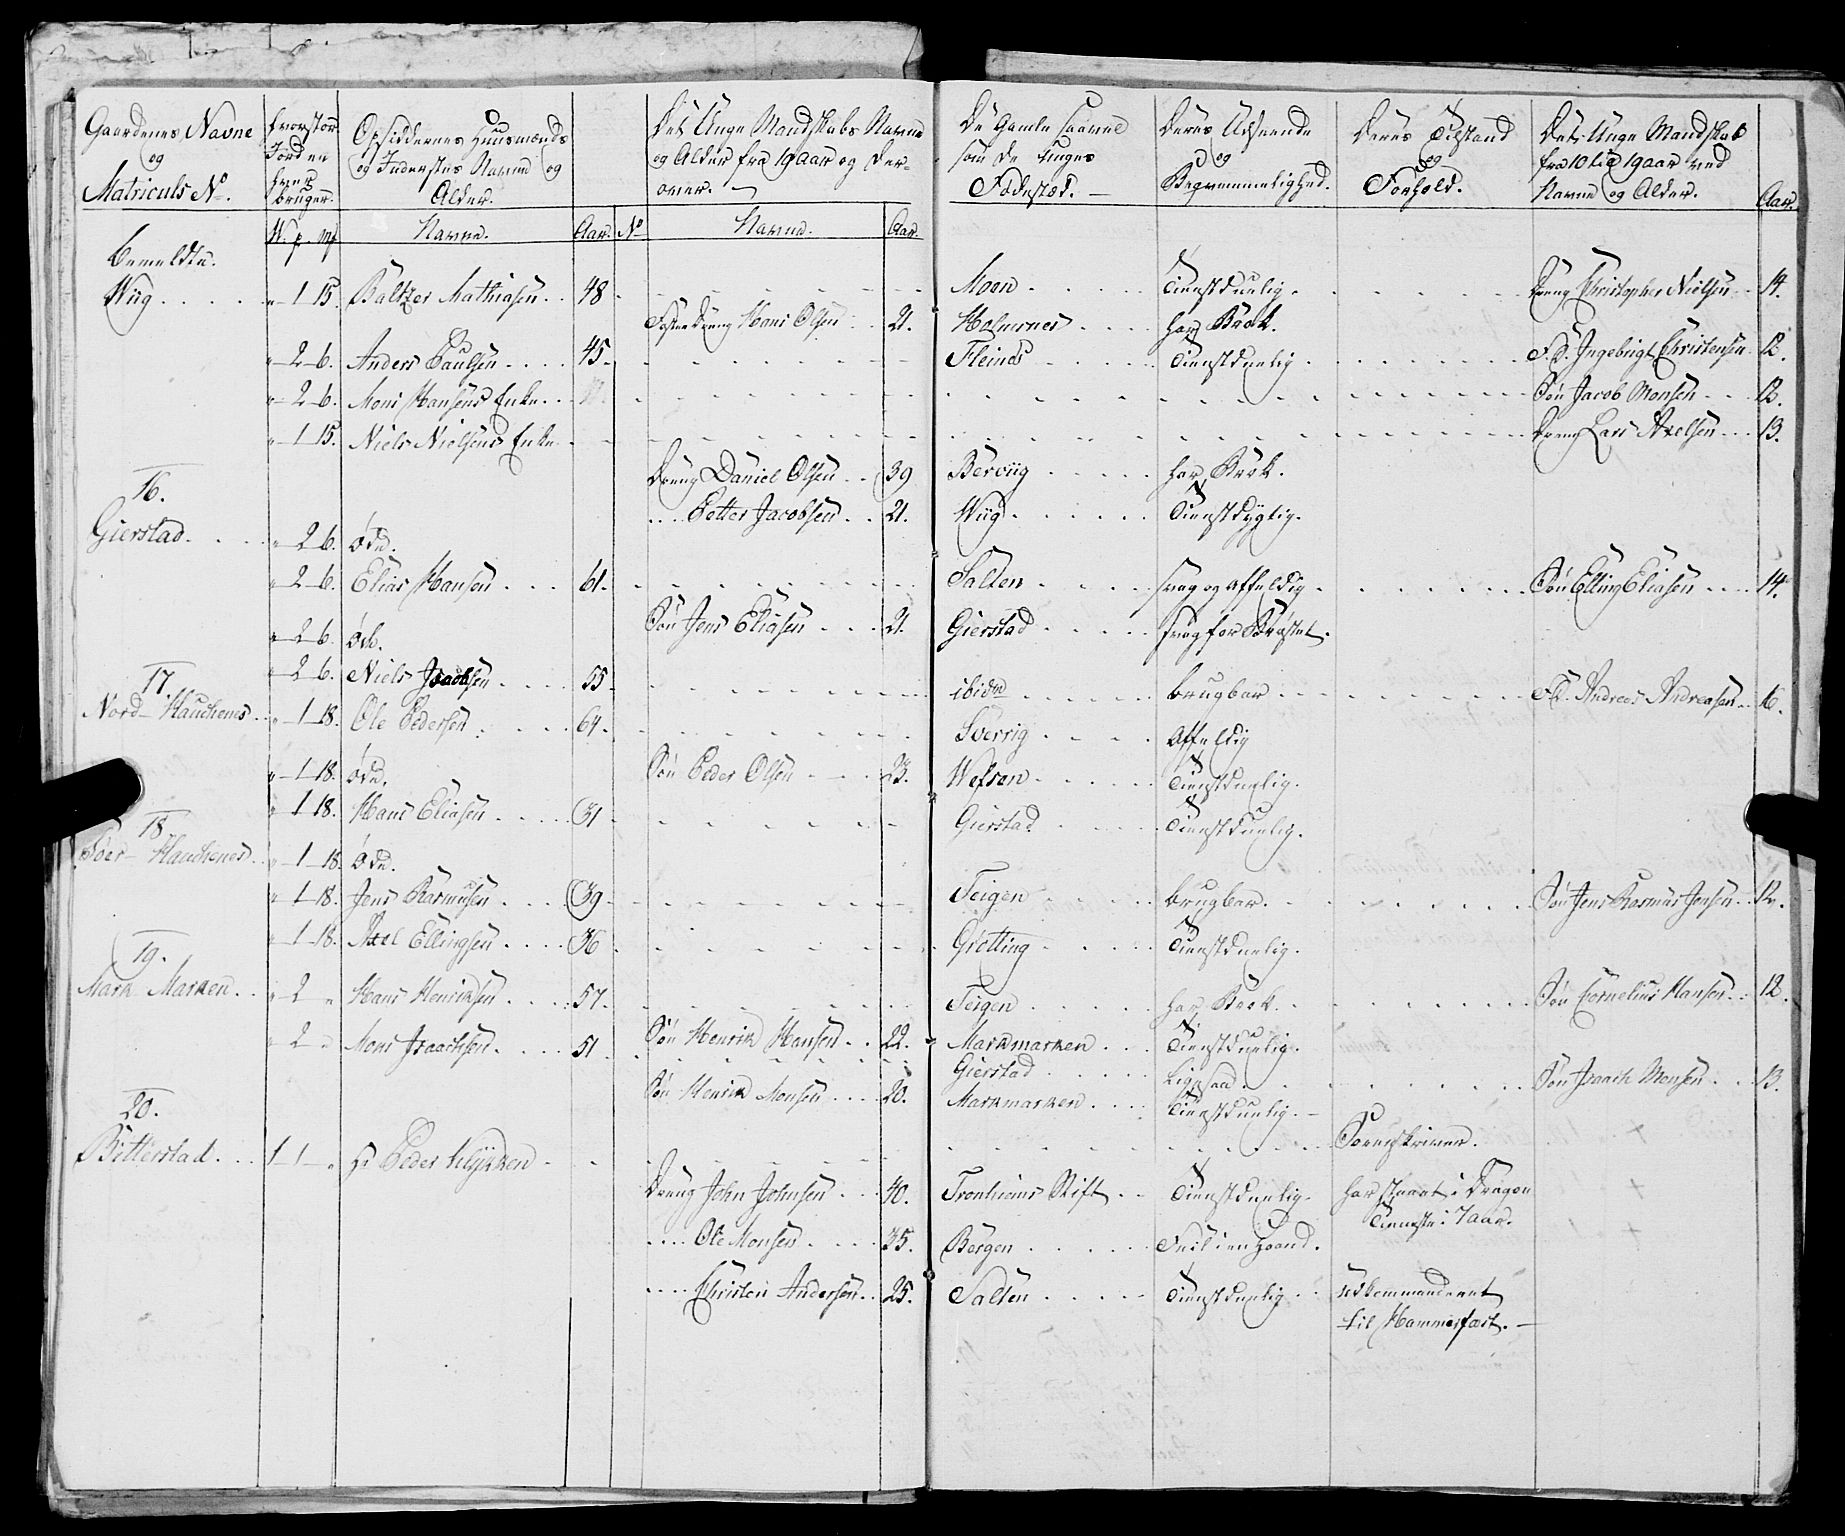 Gaardenes Navne og Matriculs No. | hvor stor Jord en hver bruger. | Opsiddernes Huusmænds og Inderstes Navne og Alder. | Det Unge Mandskabs Navne og Alder fra 19 Aar og der- over. | De Gamle saavel som de Unges Fødestæd. | Deres Udseende og Beqvemmelighed. | Deres Tilstand og Forhold. | Det Unge Mandskab fra 10 til 19 aar ved Navne og Alder. | Aar.
W. p. m& | Navne. | Aar. | No | Navne. | Aar.
bemeldte.
Wiig . . . | " 1 15. | Baltzer Mathiasen . . | 48 | Moen | Tienstduelig. | Dreng Christopher Nielsen | 14.
Foster Dreng Hans Olsen | 21. | Holmenes | har Brok.
" 2 6. | Anders Paulsen | 45. | Fleines | Tienstduelig | F.D. Ingebrigt Christensen | 12.
" 2 6. | Mons Hansens Enke | Søn Jacob Monsen | 12.
" 1 15. | Niels Nielsens Enke | Dreng Lars Axelsen | 13.
Dreng Daniel Olsen | 39 | Berviig | har Brok.
Petter Jacobsen | 21. | Wiig | Tienstdygtig.
16.
Gierstad. | " 2 6. | øde.
" 2 6. | Elias Hansen | 61. | Salten | svag og affeldig | Søn Elling Eliasen | 14.
Søn Jens Eliasen | 21. | Gierstad | svag for Brøstet.
" 2 6. | øde.
" 2 6. | Niels Isachsen | 55 | ibidm | brugbar | F.D. Andreas Andreasen | 16.
17.
Nord- Hauchenes | " 1 18. | Ole Pedersen | 64. | Sverrig | Affeldig
Søn Peder Olsen | 23. | Wefsen | Tienstduelig.
" 1 18. | øde.
" 1 18. | Hans Eliasen | 31 | Gierstad | Tienstduelig.
18.
Søer- Hauchenes | " 1 18. | øde.
" 1 18. | Jens Rasmusen | 39 | Teigen | brugbar. | Søn Jens Rasmus Jensen | 12.
" 1 18. | Axel Ellingsen | 36 | Grøtting | Tienstduelig.
19.
Mark Marken | " 2 " | Hans Henriksen | 57. | Teigen | har Brok. | Søn Cornelius Hansen | 12.
Søn Henrik Hansen | 22. | Markmarken | Tienstduelig.
" 2 " | Mons Isaachsen | 51 | Gierstad | Ligesaa | Søn Isaach Monsen | 13.
Søn Henrik Monsen | 20. | Markmarken | Tienstduelig.
20.
Bitterstad | 1 1 " | Hr Peder | Sorenskriver.
Dreng John Johnsen | 40. | Tronhiems Stift | Tienstduelig. | har staaet i Dragon Tieneste i 7 aar.
Ole Monsen | 35. | Bergen | Feil i en Haand.
Christen Andersen | 25. | Salten | Tienstduelig | udkommanderet
til Hammerfæst.